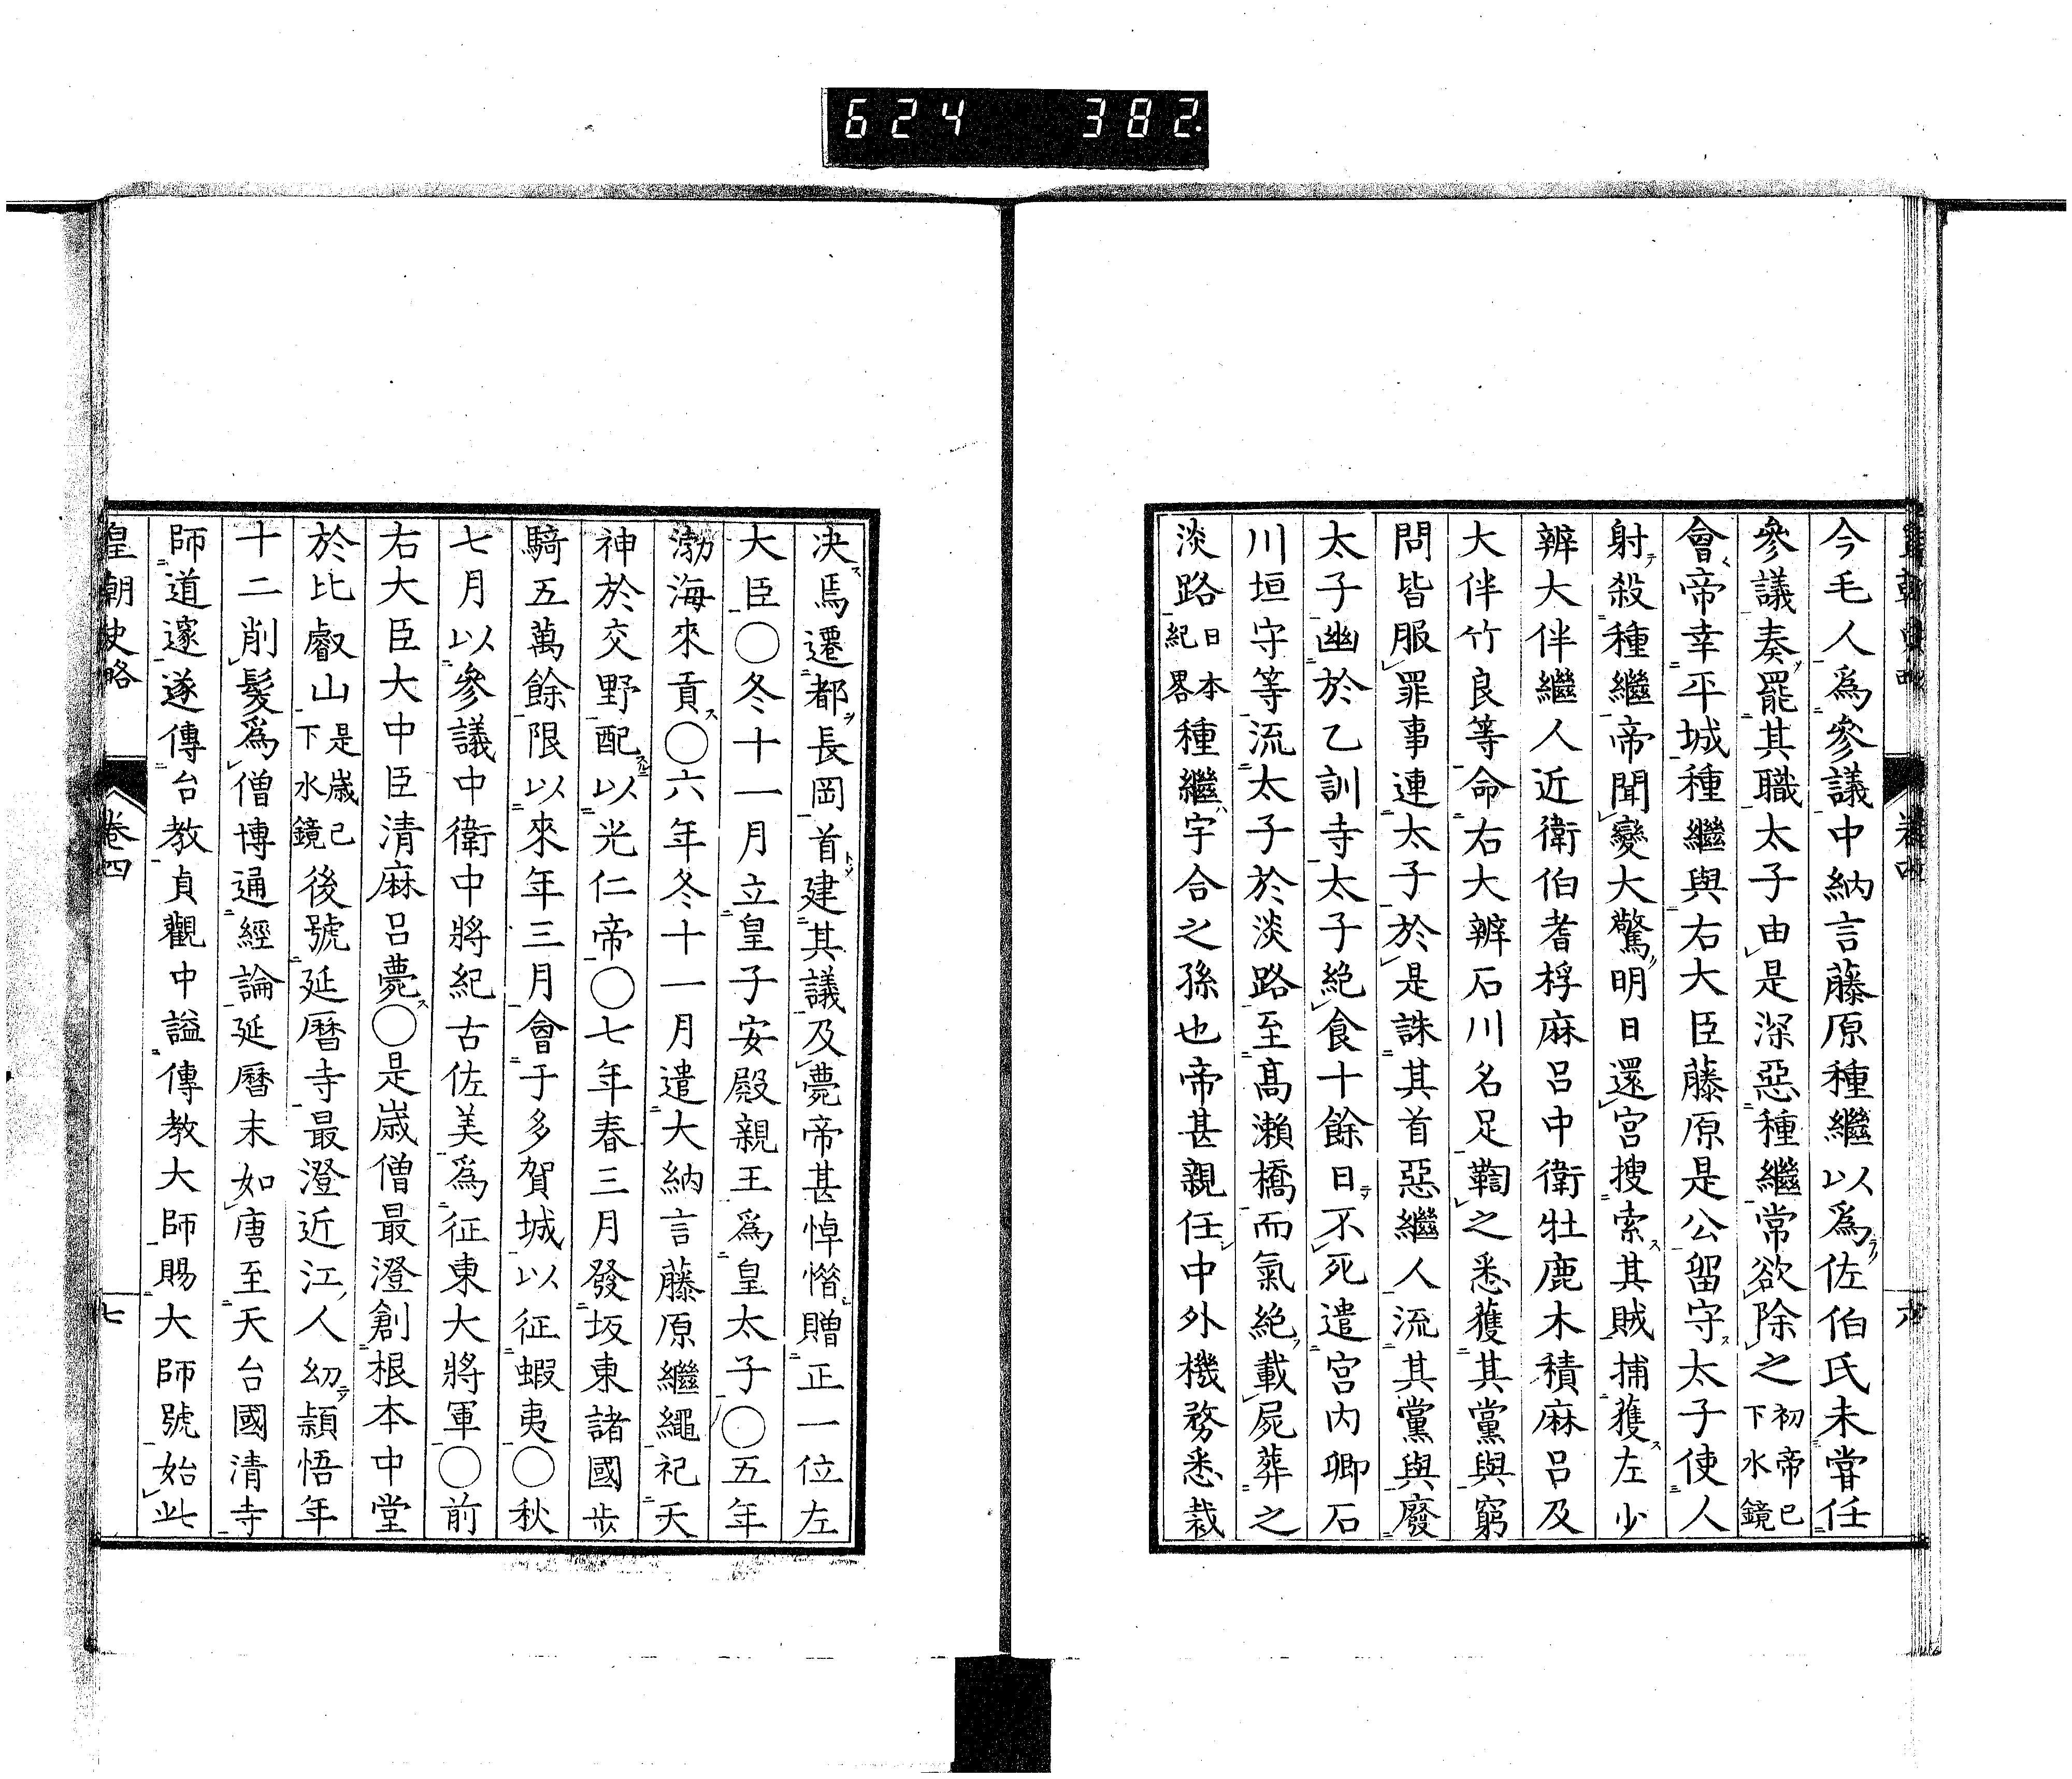 624 382
皇朝史略 卷四 六
今毛人爲參議中納言藤原種繼以爲佐伯氏未嘗任
參議奏罷其職太子由是深惡種繼常欲除之初帝已下水鏡
會帝幸平城種繼與右大臣藤原是公留守太子使人
射殺種繼帝聞變大驚明日還宮搜索其賊捕獲左少
辨大伴繼人近衛伯耆桴麻呂中衛牡鹿木積麻呂及
大伴竹良等命右大辨石川名足鞫之悉獲其黨與窮
問皆服罪事連太子於是誅其首惡繼人流其黨與廢
太子幽於乙訓寺太子絕食十餘日不死遣宮內卿石
川垣守等流太子於淡路至高瀨橋而氣絕載屍葬之
淡路日本紀畧種繼宇合之孫也帝甚親任中外機務悉裁
决焉遷都長岡首建其議及薨帝甚悼惜贈正一位左
大臣○冬十一月立皇子安殿親王爲皇太子○五年
渤海來貢○六年冬十一月遣大納言藤原繼繩祀天
神於交野配以光仁帝○七年春三月發坂東諸國步
騎五萬餘限以來年三月會于多賀城以征蝦夷○秋
七月以參議中衛中將紀古佐美爲征東大將軍○前
右大臣大中臣清麻呂薨○是歲僧最澄創根本中堂
於比叡山是歲已下水鏡後號延曆寺最澄近江人幼穎悟年
十二削髮爲僧博通經論延曆末如唐至天台國清寺
師道邃遂傳台教貞觀中謚傳教大師賜大師號始此
皇朝史略 卷四 七